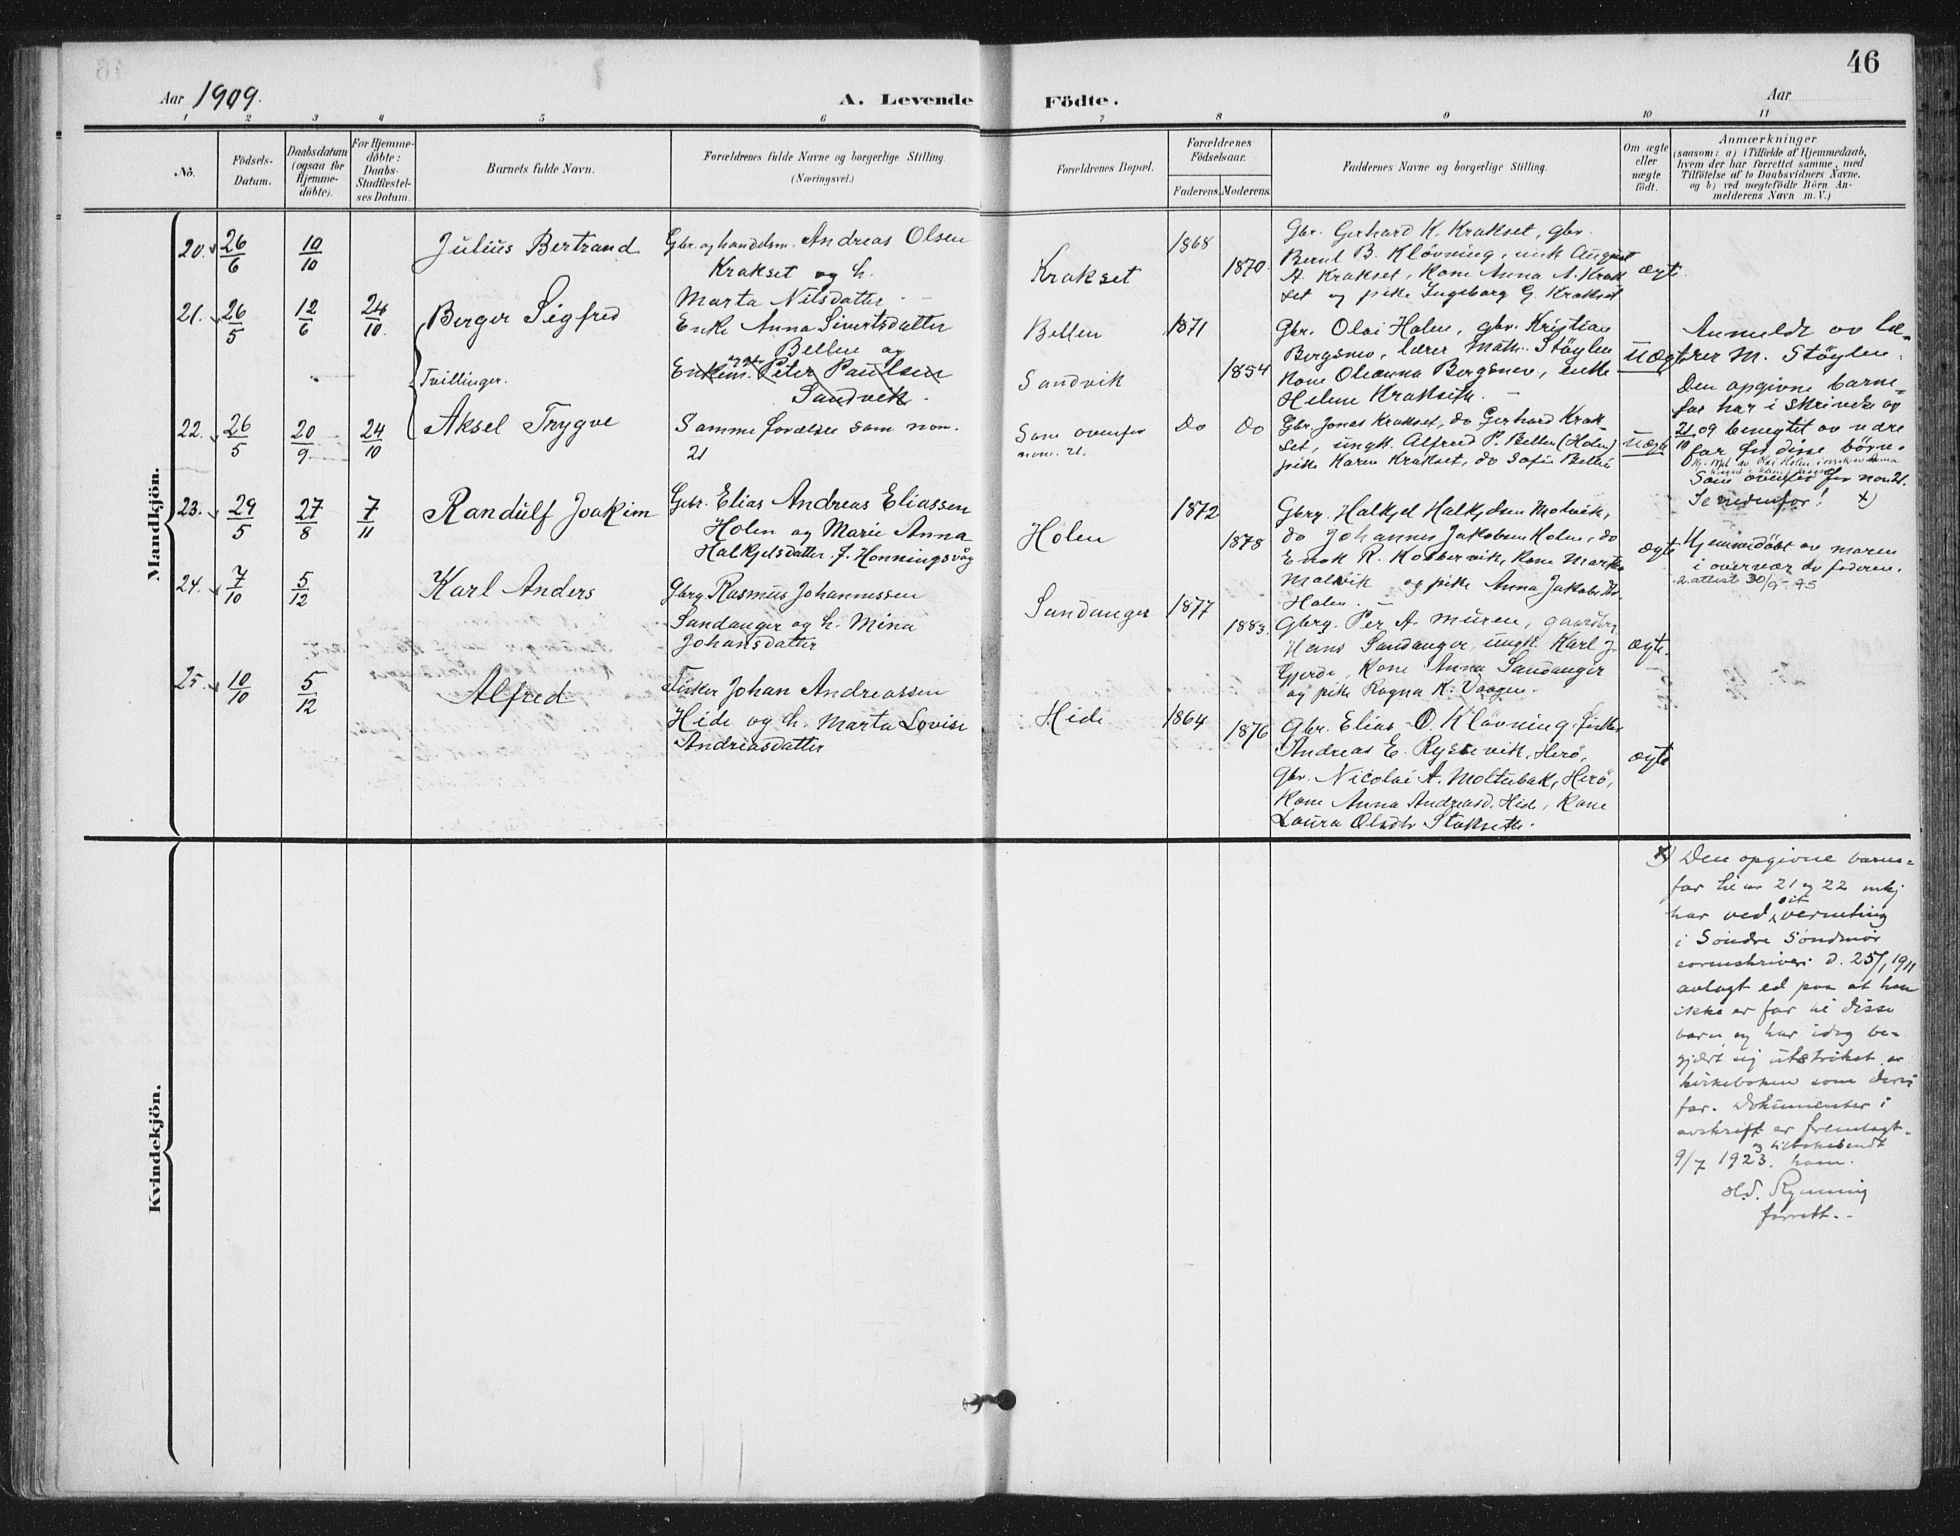 46
Aar 1909.
A. Levende Födte.
Aar
1 2 3 4 5 6 7 8 9 10 11
No.
Födsels-
Datum.
Daabsdatum
(ogsaa for
Hjemme-
döbte).
For Hjemme-
döbte:
Daabs-
Stadfæstel-
ses Datum.
Barnets fulde Navn.
Forældrenes fulde Navne og borgerlige Stilling.
(Næringsvei.)
Forældrenes Bopæl.
Forældrenes
Födselsaar.
Faderens. Moderens.
Faddernes Navne og borgerlige Stilling.
Om ægte
eller
uægte
födt.
Anmærkninger
(saasom: a) i Tilfælde af Hjemmedaab,
hvem der har forrettet samme, med
Tilföielse af to Daabsvidners Navne,
og b) ved uægtefödte Börn An-
melderens Navn m. V.)
Mandkjön.
20. 26/6 10/10
Julius Bertrand
Gbr. og handelsm. Andreas Olsen
Krakset og h.
Marta Nilsdatter
Krakset
1868
1870
Gbr. Gerhard K. Krakset, gbr.
Bernt B. Kløvning, unk August
A. Krakset, Kone Anna A. Krak
set og pike Ingeborg G. Krakset
ægte.
21. 26/5 12/6 24/10.
Berger Sigfred
Tvillinger.
Enke Anna Sivertsdatter
Bellen og
Enkem. Peter Paulsen
Sandvik.
Bellen
Sandvik
1871
1854
Gbr. Olai Holen, gbr. Kristian
Bergsnev, lærer Math. Støylen
Kone Oleanna Bergsnev, enke
Helene Krakseth.
Uægte
Anmeldt av læ-
rer M. Støylen.
Den opgivne barne-
far har i skrivelse av
21/10 09 benegtet av være
far for disse børne.
22. 26/5 20/9 24/10
Aksel Trygve
Samme forældre som nom.
21
Som ovenfor
nom. 21.
Do Do
Gbr. Jonas Krakset, do Gerhard Krak-
set, ungk. Alfred P. Bellen (Holen)
pike Karen Krakset, do Sofie Bellen
Uægte
Som ovenfor for nom 21.
Se nedenfor! x)
23. 29/5 27/8 7/11
Randulf Joakim
Gbr. Elias Andreas Eliassen
Holen og Marie Anna
Halkjelsdatter f. Honningsvåg
Holen
1872
1878
Gbrg. Halkjel Halkjelsen Molvik,
do Johannes Jakobsen Holen, do
Enok R. Kobbervik, Kone Marte
Molvik og pike Anna Jakobsdtr.
Holen.
ægte
Hjemmedøbt av moren
i overvær av faderen.
attest 30/9-75
24. 7/10 5/12
Karl Anders
Gbrg. Rasmus Johannessen
Sandanger og h. Mina
Johansdatter
Sandanger
1877
1883.
Gbrg. Per A. Muren, gaardbr.
Hans Sandanger, ungk. Karl J.
Gjerde, Kone Anna Sandanger
og pike Ragna K. Vaagen.
ægte.
25. 10/10 5/12
Alfred
Fisker Johan Andreassen
Hide og h. Marta Lovise
Andreasdatter
Hide
1864
1876
Gbr. Elias O Kløvning, fisker
Andreas E. Ryssevik, Herø,
gbr. Nicolai A. Moltubak, Herø,
Kone Anna Andreasd. Hide, Kone
Laura Olsdtr Stokseth.
ægte
Kvindekjön.
x) Den opgivne barne-
far til nr 21 og 22 mkj
har ved sit vernething
i Söndre Söndmör
sorenskriveri d. 25/1 1911
avlagt ed paa at han
ikke er far til disse
barn og har idag be-
gjært sig utstrøket av
kirkeboken som deres
far. Dokumenter i
avskrift er fremlagt
og tilbakesendt
9/7 1923. ham.
Rynning
forrett.